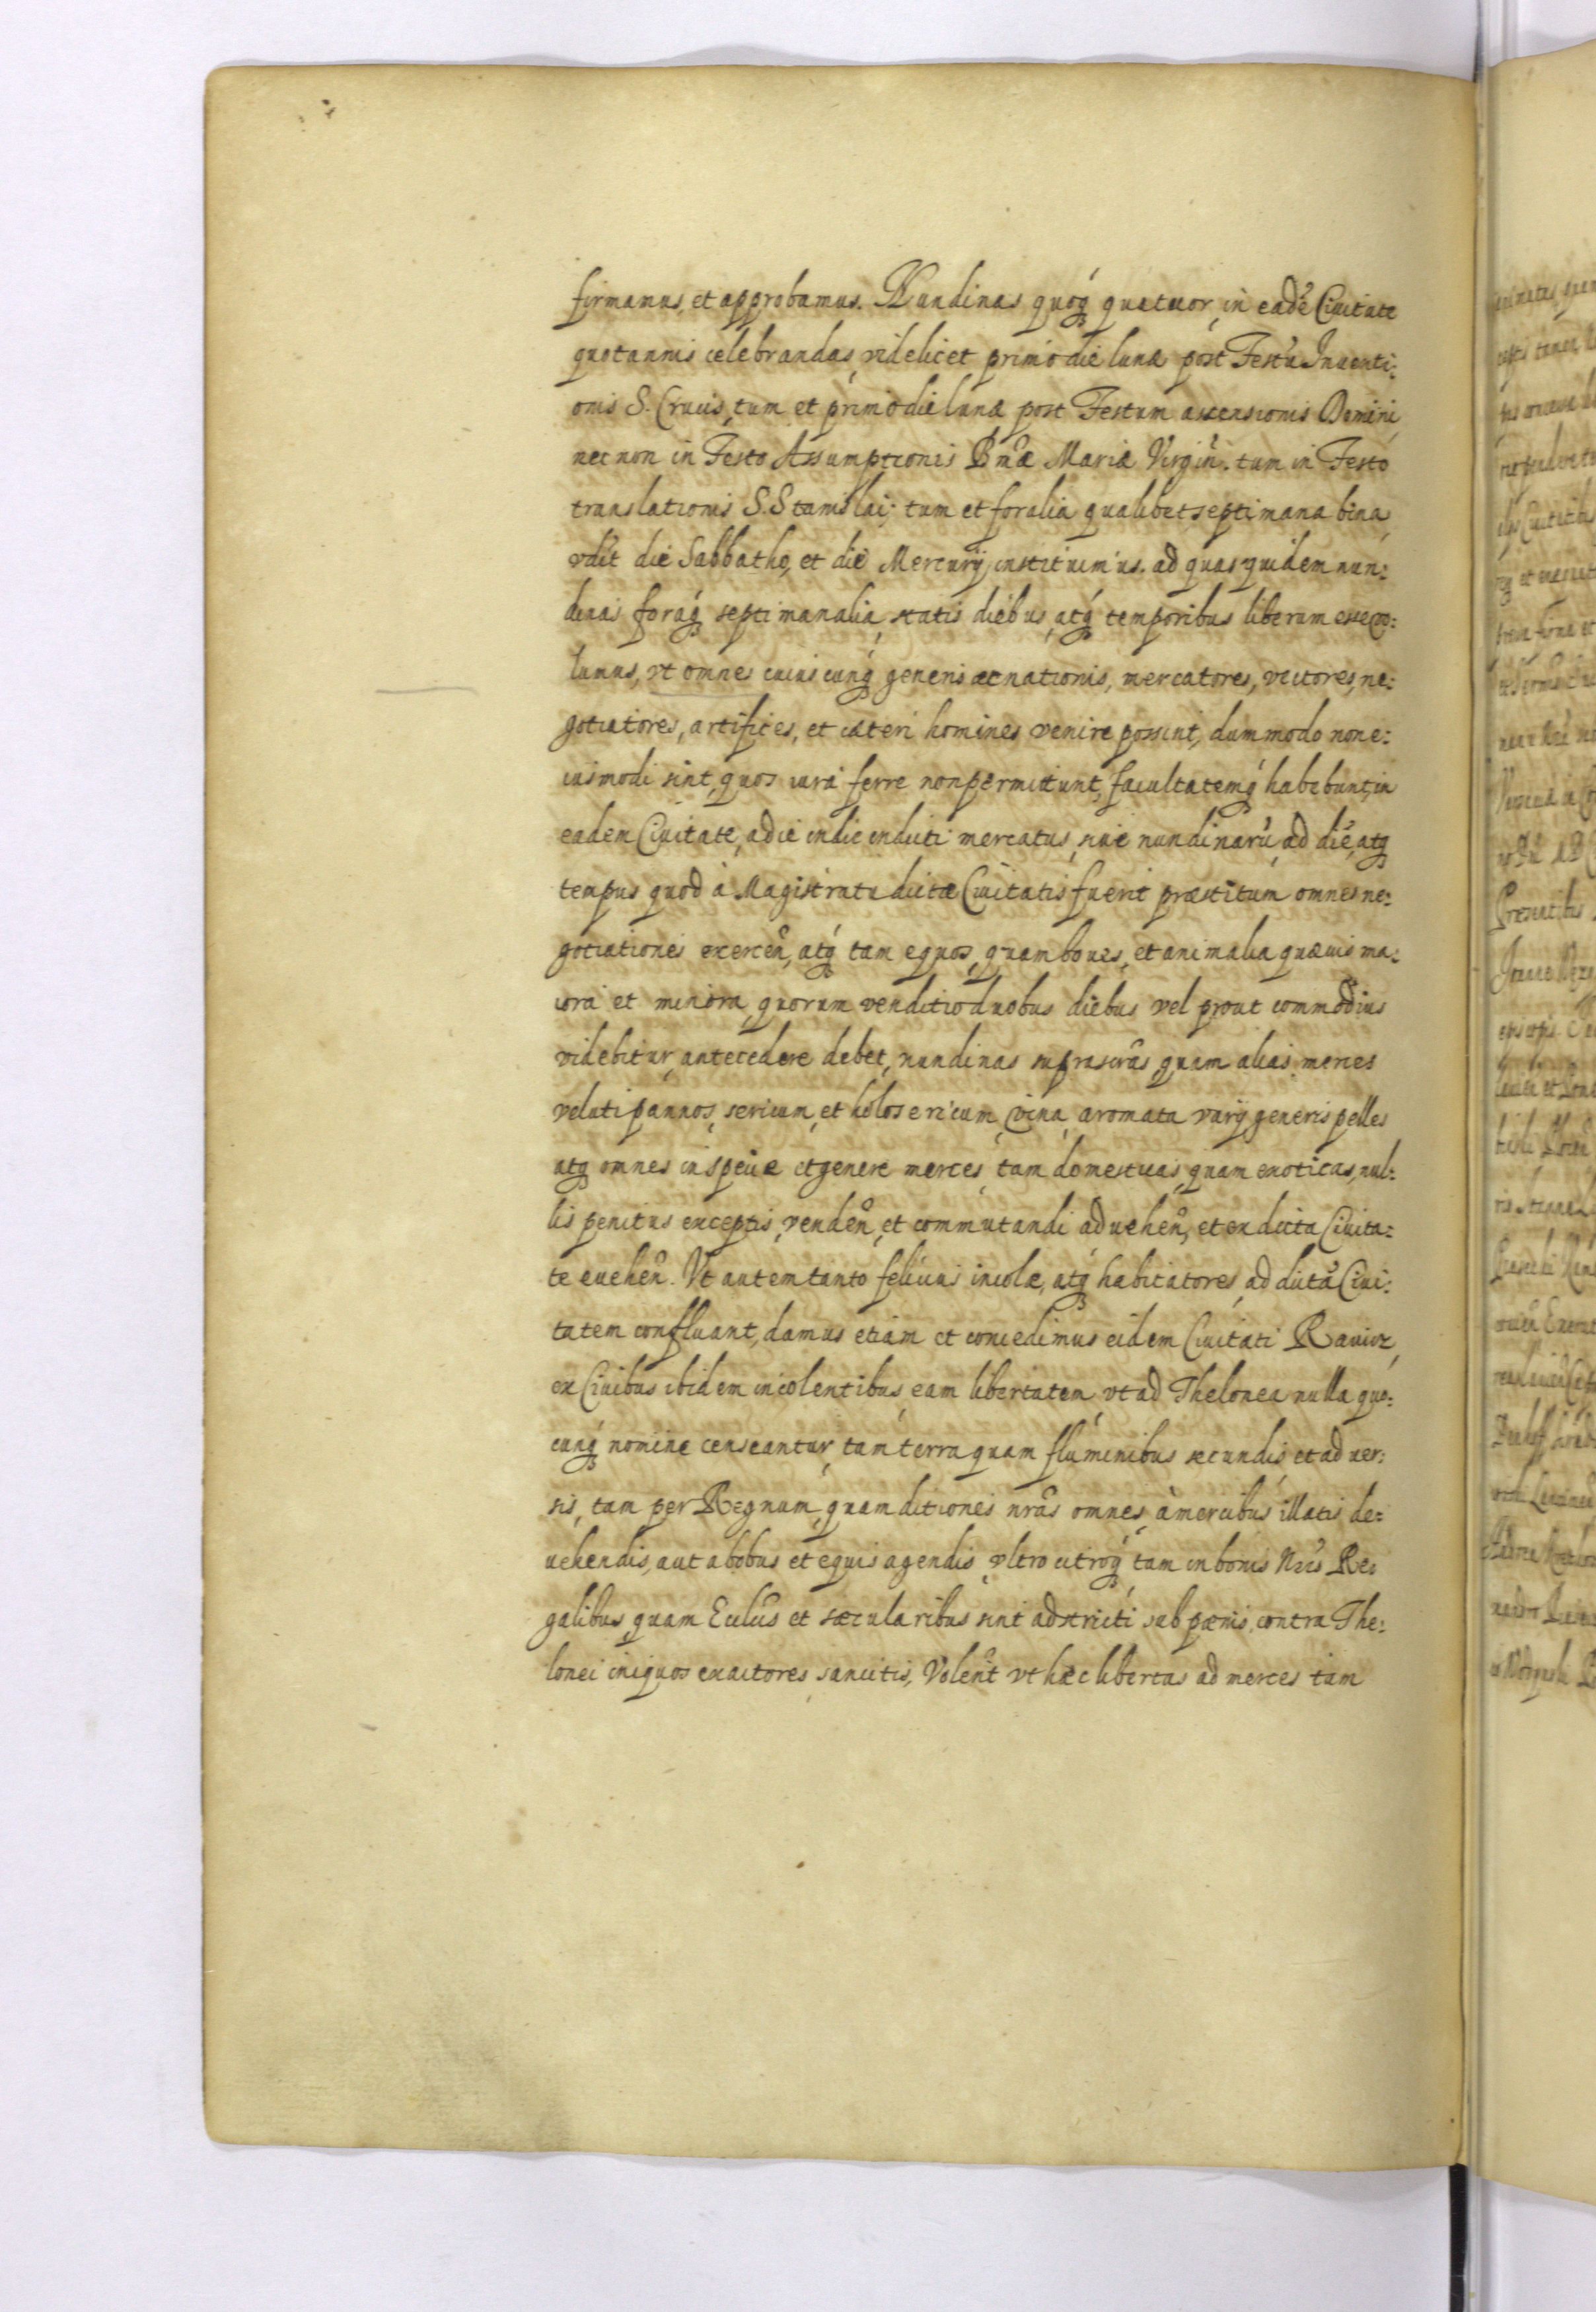 firmamus, et approbamus. Nundinas quoq́ quatuor, in eadē Ciuitate
quotannis celebrandas, videlicet primo die lunæ post Festū Inuenti:
onis S. Crucis, tum et primo die lunæ post Festum ascensionis Domini,
nec non in Festo Assumptionis Bnæ Mariæ Virgin̂. tum in Festo
translationis S. Stanislai; tum et foralia qualibet septimana bina,
vdlt die Sabbatho, et die Mercurij instituimus. ad quas quidem nun:
dinas foraq́ septimanalia, statis diebus, atq́ temporibus liberum esse vo:
lumus, vt omnes cuiuscunq́ generis ac nationis, mercatores, vectores, ne:
gotiatores, artifices, et cæteri homines venire possint, dummodo non e:
iusmodi sint, quos iura ferre non permittunt, facultatemq́ habebunt, in
eadem Ciuitate, a die indie inducti mercatus, siue nundinarū, ad diē, atq
tempus quod à Magistratu dictæ Ciuitatis fuerit præstitum omnes ne:
gotiationes exercen̂, atq́ tam equos, quam boues, et animalia quæuis ma:
iora et minora, quorum venditio duobus diebus vel prout commodius
videbitur, antecedere debet, nundinas suprascrâs quam alias merces
veluti pannos, sericum, et holosericum, vina, aromata varij generis pelles
atq omnes in specie et genere merces, tam domesticas, quam exoticas, nul:
lis penitus exceptis, venden̂, et commutandi aduehen̂, et ex dicta Ciuita:
te euehen̂. Vt autem tanto felicius incolæ, atq́ habitatores, ad dictā Ciui:
tatem confluant, damus etiam et concedimus eidem Ciuitati Rauicz,
ex Ciuibus ibidem incolentibus, eam libertatem, vt ad Thelonea nulla quo:
cunq́ nomine censeantur, tam terra quam fluminibus secundis, et aduer:
sis, tam per Regnum, quam ditiones nrâs omnes, à mercibus illatis de:
uehendis, aut a bobus et equis agendis, vltro citroq́ tam in bonis Nrîs Re:
galibus, quam Eccliîs et sæcularibus sint adstricti sub pœnis, contra The:
lonei iniquos exactores sancitis, Volent̂ vt hæc libertas ad merces tam